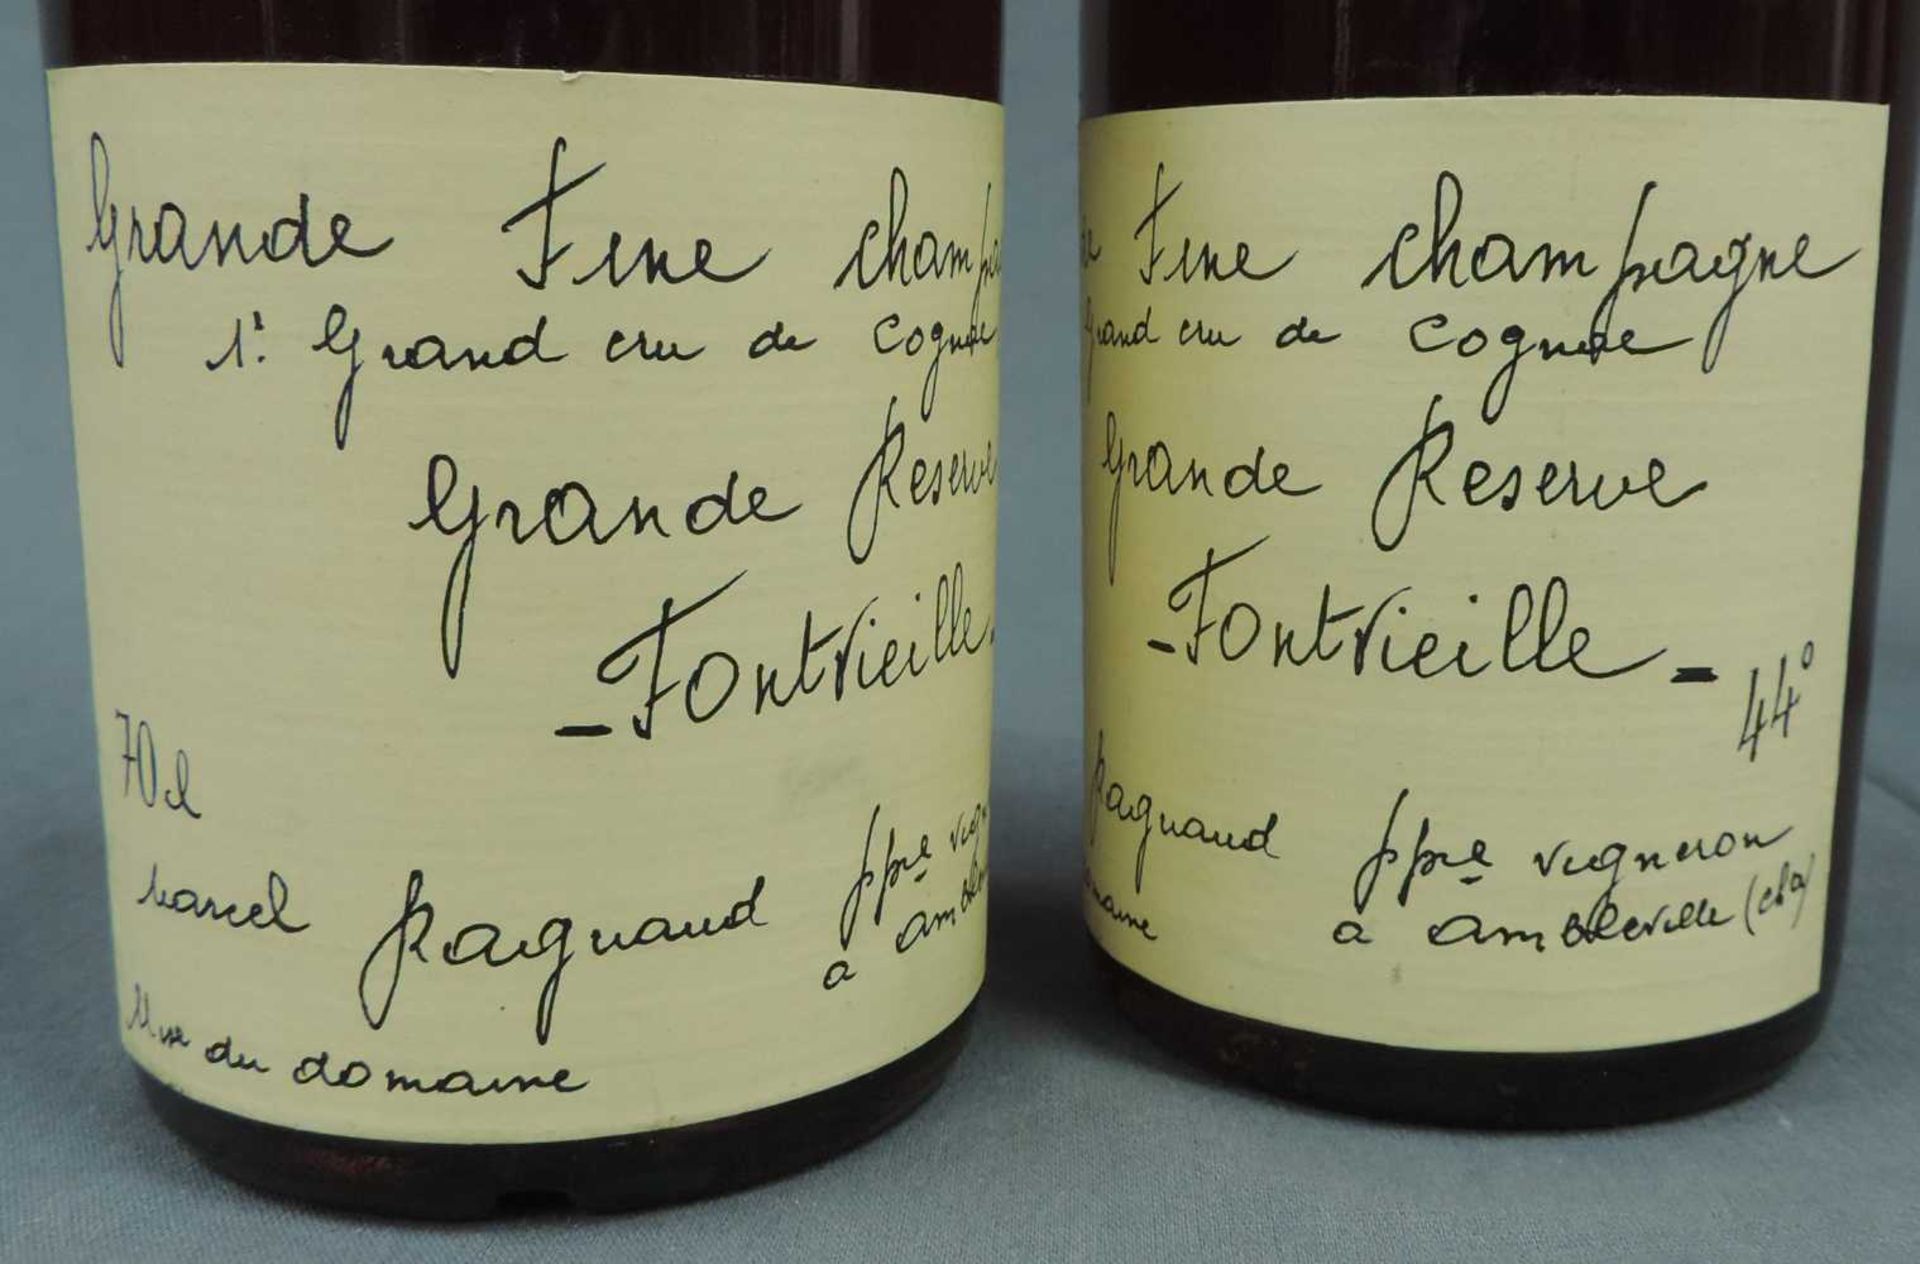 Grande Fine champa
1r. Grand cru de Cognac
Grande Reserve
-Fontvieille-
70cl
Marcel Ragnaud ppre vign
a amble
Mise du domaine
de Fine champagne
Grand cru de Cognac
Grande Reserve
-Fontvieille-
44°
Ragnaud ppre vigneron
a ambleville (cha)
maine